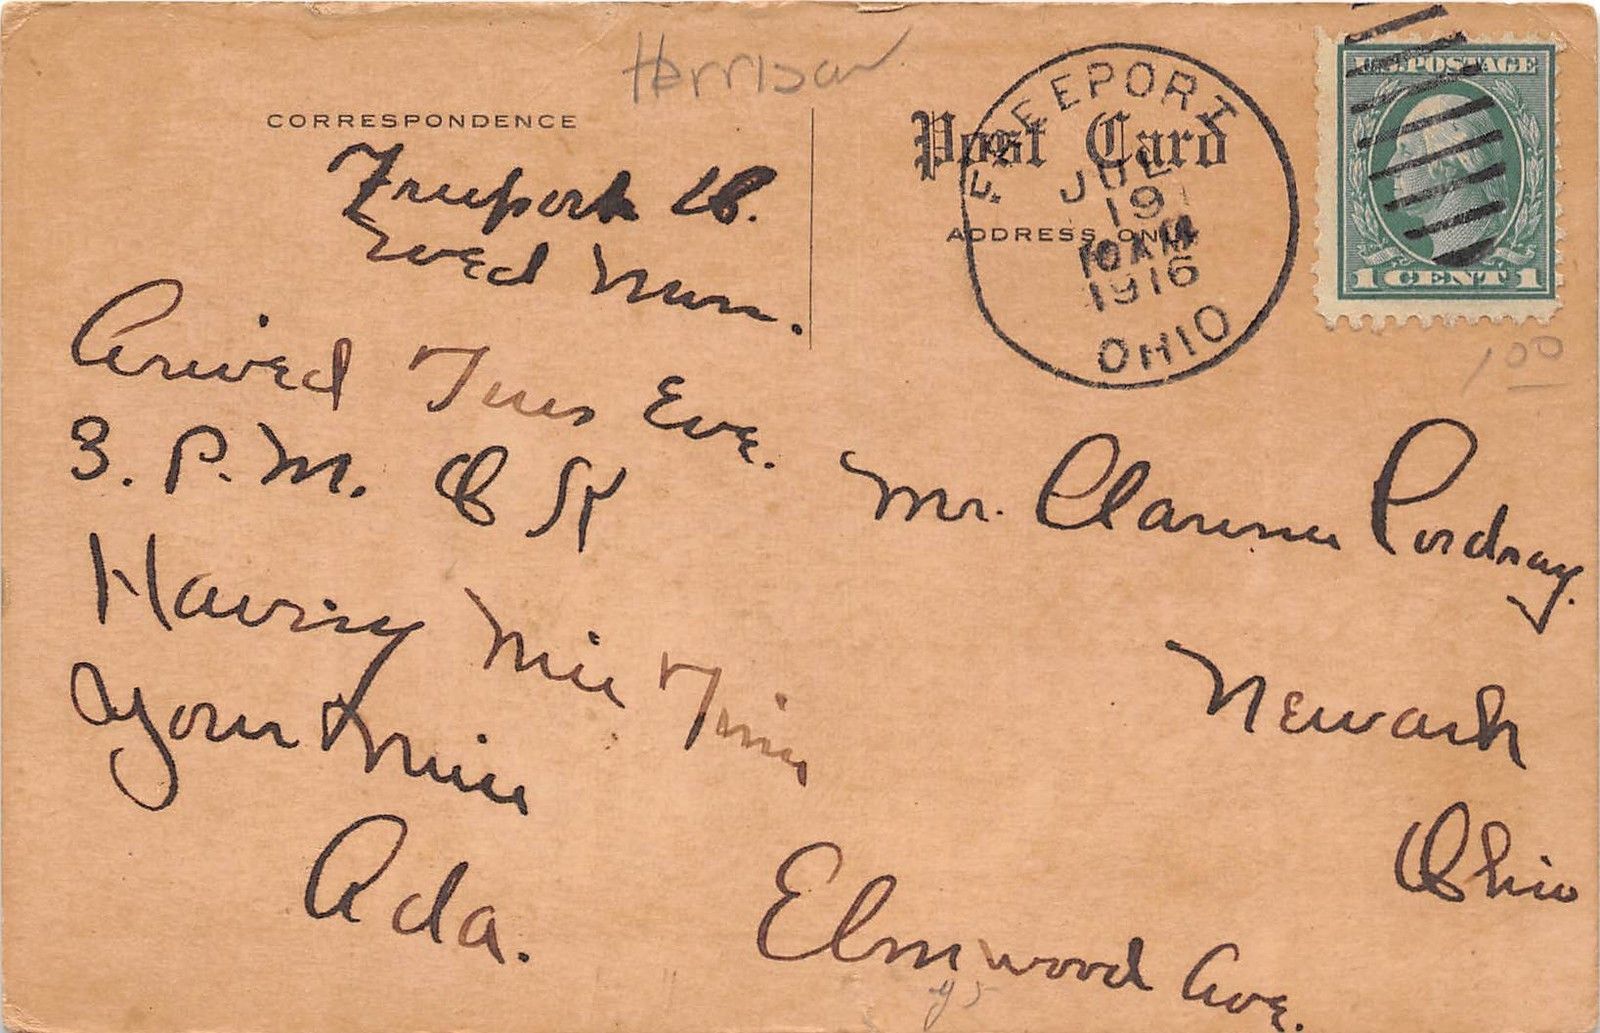 Harrison
CORRESPONDENCE
Freeport O.
Wed Morn.
Arived Tues Eve.
3. P.M. O K
Having Nice Time
Your Niece
Ada.
Post Card
ADDRESS ONLY
FREEPORT
JUL
19
10 AM
1916
OHIO
U.S. POSTAGE
1 CENT 1
1 00
Mr. Clarence Pordray.
Newark
Ohio
Elmwood Ave.